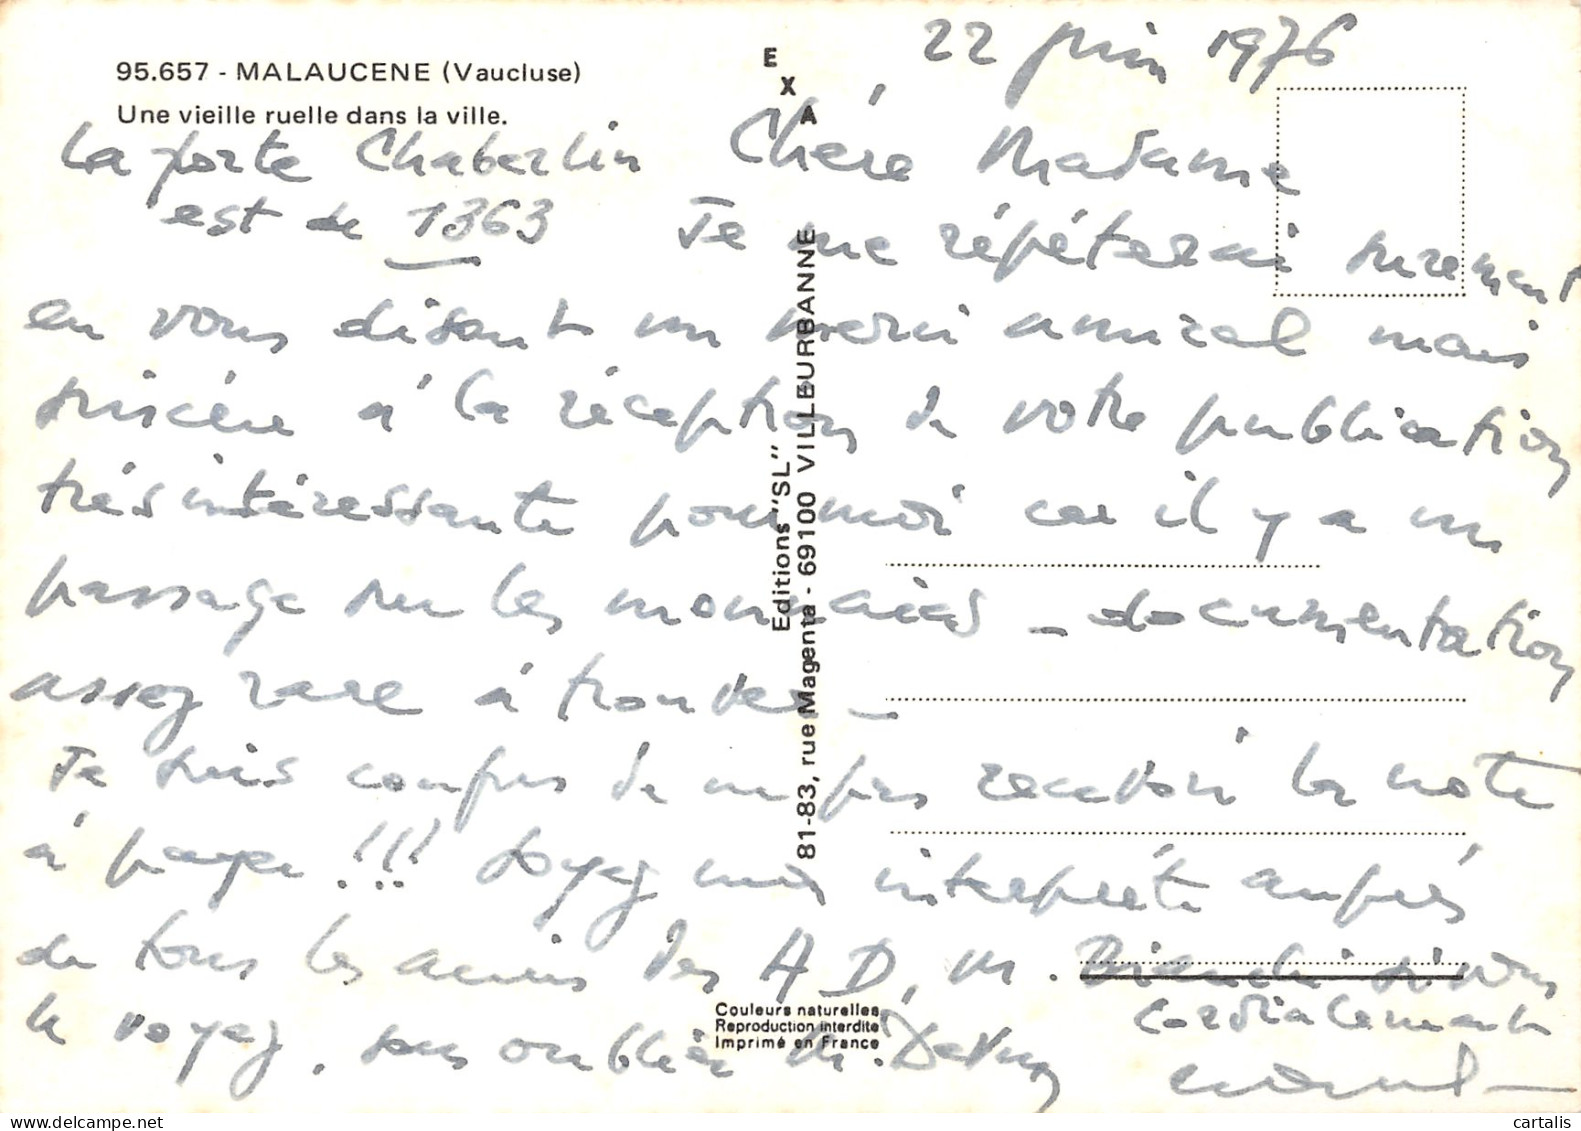 22 juin 1976
95.657 - MALAUCENE (Vaucluse)
Une vieille ruelle dans la ville.
EXA
La porte Chaberlin
est de 1363
Chére Madame
Je me répéterai surement
en vous disant un merci amical mais
sincère à la réception de votre publication
très intéressante pour moi car il y a un
passage sur les monnaies _ documentation
assez rare à trouver _
Je suis confus de ne pas recevoir la note
à payer !!! Soyez mon interprète auprès
de tous les amis des A D, M. Bianchi si vous
le voyez, sans oublier M.
Cordialement
Editions "SL"
81-83, rue Magenta - 69100 VILLEURBANNE
Couleurs naturelles
Reproduction interdite
Imprimé en France
cartalis